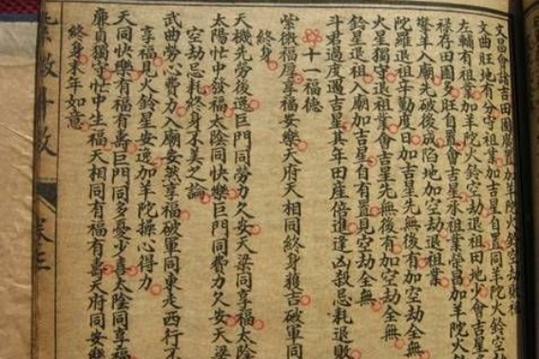 文昌會諸吉田園廣置加羊陀火鈴空劫敗祖
文曲旺地有分守祖業加羊陀火鈴空劫
左輔有祖業加羊陀火鈴空劫退祖田地少會吉星
祿存田園多旺自置會吉星承祖業榮昌加羊陀火
擎羊入廟先破後成陷地加空劫退祖業
陀羅退祖辛勤度日加吉星先無後有加空劫全無
火星獨守退祖業會吉星先無後有加空劫全無
鈴星退祖入廟加吉星自有置見空劫全無
斗君過度遇吉星其年田産倍進逢凶殺忌耗退敗
十一福德
紫微福厚享福安樂天府天相同終身獲吉破軍同
終身
天機先勞後逸巨門同勞力欠安天梁同享福太陰
太陽忙中發福太陰同快樂巨門同費力欠安天梁
空劫忌耗終身不美之論
武曲勞心費力入廟安然享福破軍同東走西行不
享福見火鈴星安逸加羊陀操心得力
天同快樂有福有壽巨門同多憂少喜太陰同享
廉貞獨守忙中生福天相同有福有壽天府同安
終身末年如意
紫微斗數 卷三